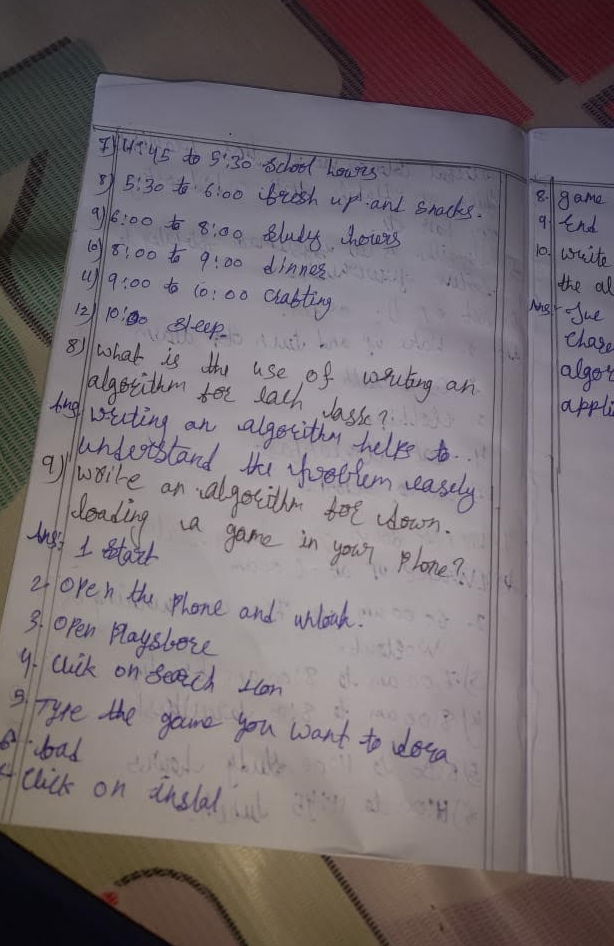 7) 4:45 to 5:30 school hours
8) 5:30 to 6:00 fresh up and snacks.
9) 6:00 to 8:00 study hours
10) 8:00 to 9:00 dinner
11) 9:00 to 10:00 Chatting
12) 10:00 sleep
8) what is the use of writing an
algorithm for each
Ans writing an algorithm helps to
understand the problem easely
9) write an algorithm for down.
loading a game in your phone?
Ans:- 1 start
2. open the phone and unlock.
3. open Playstore
4. Click on search Icon
5. Type the game you want to
6. load
Click on instal
8. game
9. End
10. write
the al
Ans:-
Chara
algor
appli